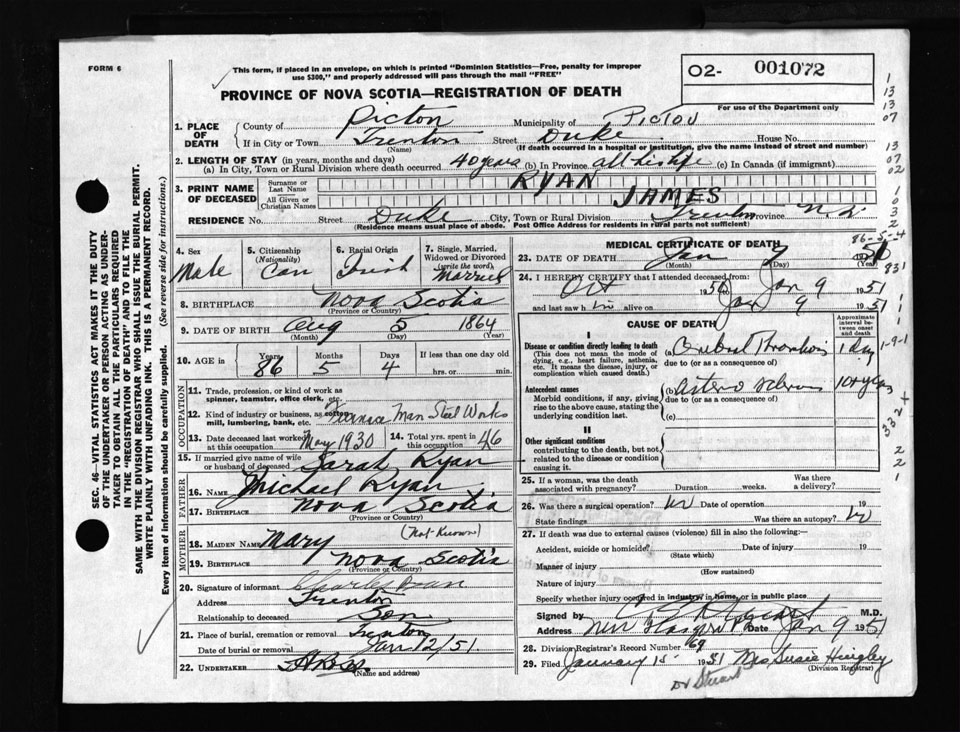 FORM 6
This form, if placed in an envelope, on which is printed "Dominion Statistics—Free, penalty for improper
use $300," and properly addressed will pass through the mail "FREE"
PROVINCE OF NOVA SCOTIA—REGISTRATION OF DEATH
02- 001072
For use of the Department only
1. PLACE OF DEATH
County of Pictou Municipality of PICTOU
If in City or Town Trenton Street Duke House No.
(Name) (If death occurred in a hospital or institution, give the name instead of street and number)
2. LENGTH OF STAY (in years, months and days)
(a) In City, Town or Rural Division where death occurred 40 years (b) In Province all his life (c) In Canada (if immigrant)
3. PRINT NAME OF DECEASED
Surname or Last Name RYAN
All Given or Christian Names JAMES
RESIDENCE No. Street Duke City, Town or Rural Division Trenton Province N.S.
(Residence means usual place of abode. Post Office Address for residents in rural parts not sufficient)
4. Sex Male
5. Citizenship (Nationality) Can
6. Racial Origin Irish
7. Single, Married, Widowed or Divorced (write the word) Married
8. BIRTHPLACE Nova Scotia
(Province or Country)
9. DATE OF BIRTH Aug 5 1864
(Month) (Day) (Year)
10. AGE IN Years 86 Months 5 Days 4 If less than one day old
hrs. or min.
OCCUPATION
11. Trade, profession, or kind of work as
spinner, teamster, office clerk, etc.
12. Kind of industry or business, as cotton
mill, lumbering, bank, etc. Furnace Man Steel Works
13. Date deceased last worked at this occupation May 1930
14. Total yrs. spent in this occupation 46
15. If married give name of wife or husband of deceased Sarah Ryan
FATHER
16. NAME Michael Ryan
17. BIRTHPLACE Nova Scotia
(Province or Country)
MOTHER
18. MAIDEN NAME Mary (Not Known)
19. BIRTHPLACE Nova Scotia
(Province or Country)
20. Signature of informant Charles Ryan
Address Trenton
Relationship to deceased Son
21. Place of burial, cremation or removal Trenton
Date of burial or removal Jan 12/51.
22. UNDERTAKER
(Name and address)
MEDICAL CERTIFICATE OF DEATH
86-5-4
23. DATE OF DEATH Jan
(Month) (Day) (Year)
24. I HEREBY CERTIFY that I attended deceased from:
Oct 1950 Jan 9 1951
and last saw h im alive on Jan 9 1951
CAUSE OF DEATH
Approximate interval between onset and death
I
Disease or condition directly leading to death
(This does not mean the mode of dying, e.g., heart failure, asthenia, etc. It means the disease, injury, or complication which caused death.)
(a) Cerebral Thrombosis 1 day
due to (or as a consequence of)
Antecedent causes
Morbid conditions, if any, giving rise to the above cause, stating the underlying condition last.
(b) Arterio sclerosis 10+ years
due to (or as a consequence of)
(c)
II
Other significant conditions
contributing to the death, but not related to the disease or condition causing it.
25. If a woman, was the death associated with pregnancy? Duration weeks. Was there a delivery?
26. Was there a surgical operation? No Date of operation 19
State findings Was there an autopsy? No
27. If death was due to external causes (violence) fill in also the following:—
Accident, suicide or homicide? Date of injury 19
(State which)
Manner of injury
(How sustained)
Nature of injury
Specify whether injury occurred in industry, in home, or in public place
Signed by M.D.
Address New Glasgow Date Jan 9 1951
28. Division Registrar's Record Number 169
29. Filed January 15 1951 Mrs Susie Hingley
(Division Registrar)
Dr Stewart
SEC. 46—VITAL STATISTICS ACT MAKES IT THE DUTY
OF THE UNDERTAKER OR PERSON ACTING AS UNDER-
TAKER TO OBTAIN ALL THE PARTICULARS REQUIRED
IN THE "REGISTRATION OF DEATH" AND TO FILE THE
SAME WITH THE DIVISION REGISTRAR WHO SHALL ISSUE THE BURIAL PERMIT.
WRITE PLAINLY WITH UNFADING INK. THIS IS A PERMANENT RECORD.
Every item of information should be carefully supplied. (See reverse side for instructions.)